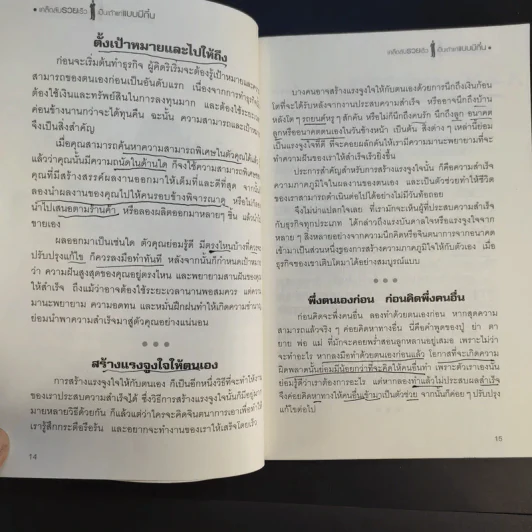 เคล็ดลับรวยเร็ว เป็นเถ้าแก่แบบมีกึ๋น
ตั้งเป้าหมายและไปให้ถึง
ก่อนจะเริ่มต้นทำธุรกิจ ผู้คิดริเริ่มจะต้องรู้เป้าหมายและความ
สามารถของตนเองก่อนเป็นอันดับแรก เนื่องจากการทำธุรกิจ
ต้องใช้เงินและทรัพย์สินในการลงทุนมาก และต้องใช้ระยะ
ค่อนข้างนานกว่าจะได้ทุนคืน ฉะนั้น ความสามารถและเป้าหมาย
จึงเป็นสิ่งสำคัญ
เมื่อคุณสามารถค้นหาความสามารถพิเศษในตัวคุณได้แล้ว
แล้วว่าคุณนั้นมีความถนัดในด้านใด ก็จงใช้ความสามารถพิเศษ
คุณที่มีสร้างสรรค์ผลงานออกมาให้เต็มที่และดีที่สุด จากนั้น
ลองนำผลงานของคุณไปให้คนรอบข้างพิจารณาดู หรือไม่ก็
นำไปเสนอตามร้านค้า หรือลองผลิตออกมาหลายๆ ชิ้น แล้วนำไป
ขายเอง
ผลออกมาเป็นเช่นใด ตัวคุณย่อมรู้ดี มีตรงไหนบ้างที่ควร
ปรับปรุงแก้ไข ก็ควรลงมือทำทันที หลังจากนั้นก็กำหนดเป้าหมาย
ว่า ความฝันสูงสุดของคุณอยู่ตรงไหน และพยายามสานฝันของคุณ
ให้สำเร็จ ถึงแม้ว่าอาจต้องใช้ระยะเวลานานพอสมควร แต่ความ
มานะพยายาม ความอดทน และหมั่นฝึกฝนทำให้เกิดความชำนาญ
ย่อมนำพาความสำเร็จมาสู่ตัวคุณอย่างแน่นอน
สร้างแรงจูงใจให้ตนเอง
การสร้างแรงจูงใจให้กับตนเอง ก็เป็นอีกหนึ่งวิธีที่จะทำให้งาน
ของเราประสบความสำเร็จได้ ซึ่งวิธีการสร้างแรงจูงใจนั้นก็มีอยู่มาก
มายหลายวิธีด้วยกัน ก็แล้วแต่ว่าใครจะคิดจินตนาการเอาเพื่อทำให้
เรารู้สึกกระตือรือร้น และอยากจะทำงานของเราให้เสร็จโดยเร็ว
14
เคล็ดลับรวยเร็ว เป็นเถ้าแก่แบบมีกึ๋น
บางคนอาจสร้างแรงจูงใจให้กับตนเองด้วยการนึกถึงเงินก้อน
โตที่จะได้รับหลังจากงานประสบความสำเร็จ หรืออาจนึกถึงบ้าน
หลังโตๆ รถยนต์หรูๆ สักคัน หรือไม่ก็นึกถึงคนรัก นึกถึงลูก อนาคต
ลูกหรืออนาคตตนเองในวันข้างหน้า เป็นต้น สิ่งต่างๆ เหล่านี้ย่อม
เป็นแรงจูงใจที่ดี ที่จะคอยผลักดันให้เรามีความมานะพยายามที่จะ
ทำความฝันของเราให้สำเร็จเร็วยิ่งขึ้น
ประการสำคัญสำหรับการสร้างแรงจูงใจนั้น ก็คือความสำเร็จ
ความภาคภูมิใจในผลงานของตนเอง และเป็นตัวช่วยทำให้ชีวิต
ของเราสามารถดำเนินต่อไปได้อย่างไม่มีวันท้อถอย
จึงไม่น่าแปลกใจเลย ที่เรามักจะเห็นผู้ที่ประสบความสำเร็จ
กับธุรกิจทุกประเภท ได้กล่าวถึงแรงบันดาลใจหรือแรงจูงใจจาก
หลายๆ สิ่งหลายอย่างจากความนึกคิดหรือจินตนาการจากอนาคต
เข้ามาเป็นส่วนหนึ่งของการสร้างความภาคภูมิใจให้กับตัวเอง เมื่อ
ธุรกิจของเขาเติบโตมาได้อย่างสมบูรณ์แบบ
พึ่งตนเองก่อน ก่อนคิดพึ่งคนอื่น
ก่อนคิดจะพึ่งคนอื่น ลองทำด้วยตนเองก่อน หากสุดความ
สามารถแล้วจริงๆ ค่อยคิดหาทางอื่น นี่คือคำพูดของปู่ ย่า ตา
ยาย พ่อ แม่ ที่มักจะคอยพร่ำสอนลูกหลานอยู่เสมอ เพราะไม่ว่า
จะทำอะไร หากลงมือทำด้วยตนเองก่อนแล้ว โอกาสที่จะเกิดความ
ผิดพลาดนั้นย่อมมีน้อยกว่าที่จะคิดให้คนอื่นทำ เพราะตัวเราเองนั้น
ย่อมรู้ดีว่าเราต้องการอะไร แต่หากลองทำแล้วไม่ประสบผลสำเร็จ
จึงค่อยคิดหาทางให้คนอื่นเข้ามาเป็นตัวช่วย จากนั้นก็ค่อยๆ ปรับปรุง
แก้ไขต่อไป
15